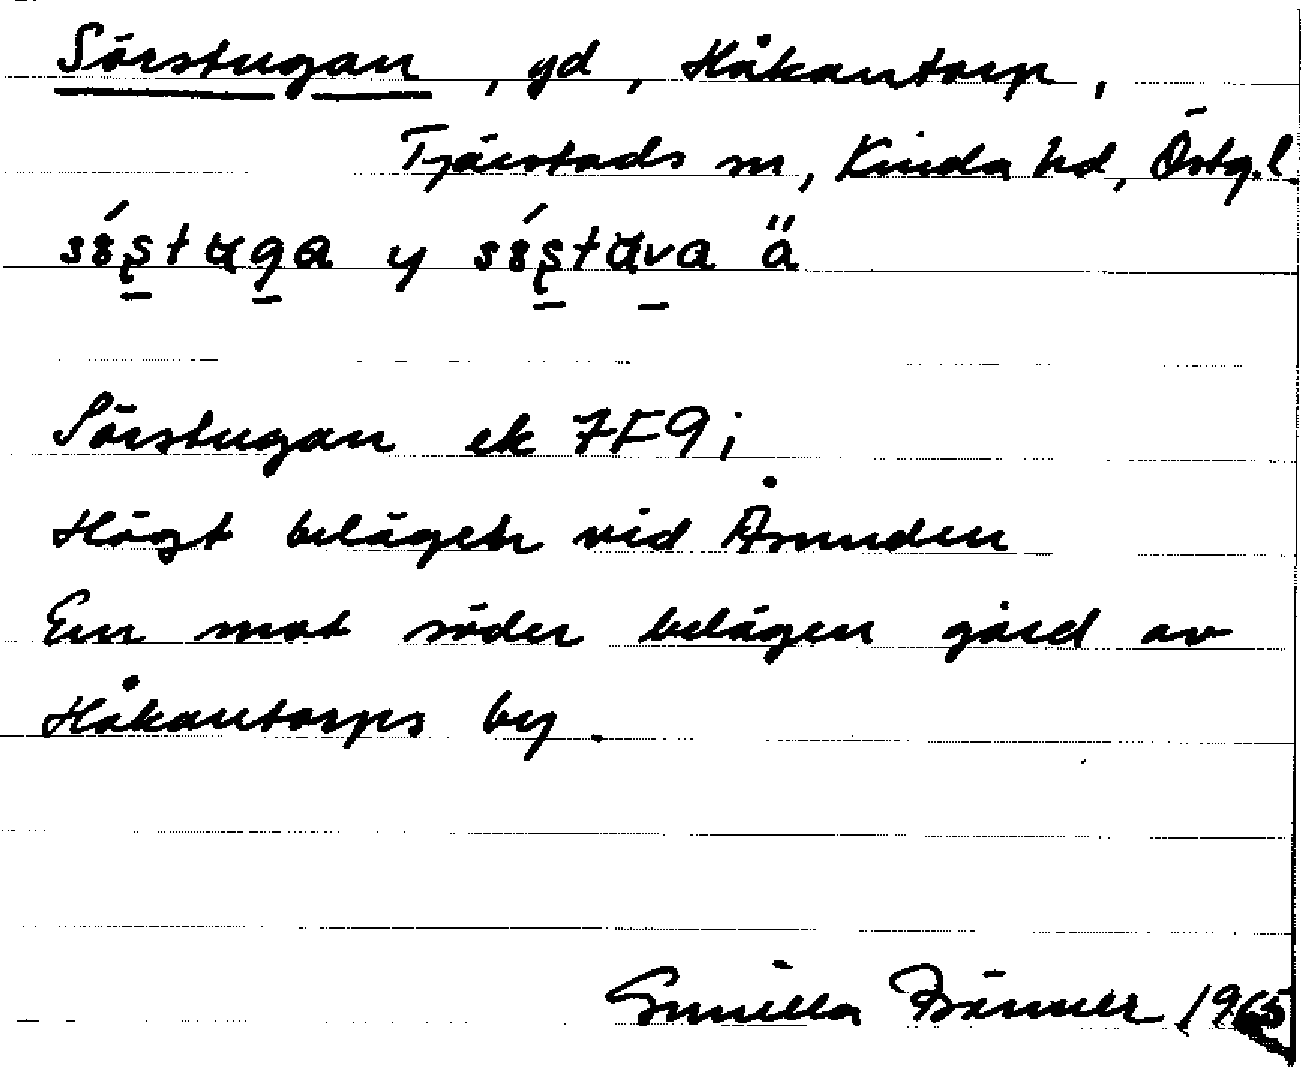 Sörstugan, gd, Håkantorp,
Tjärstads sn, Kinda hd, Östg.l.
y ä
Sörstugan ek 7F9i
Högt belägen vid Åsunden
En mot söder belägen gård av
Håkantorps by.
Gunilla 1965